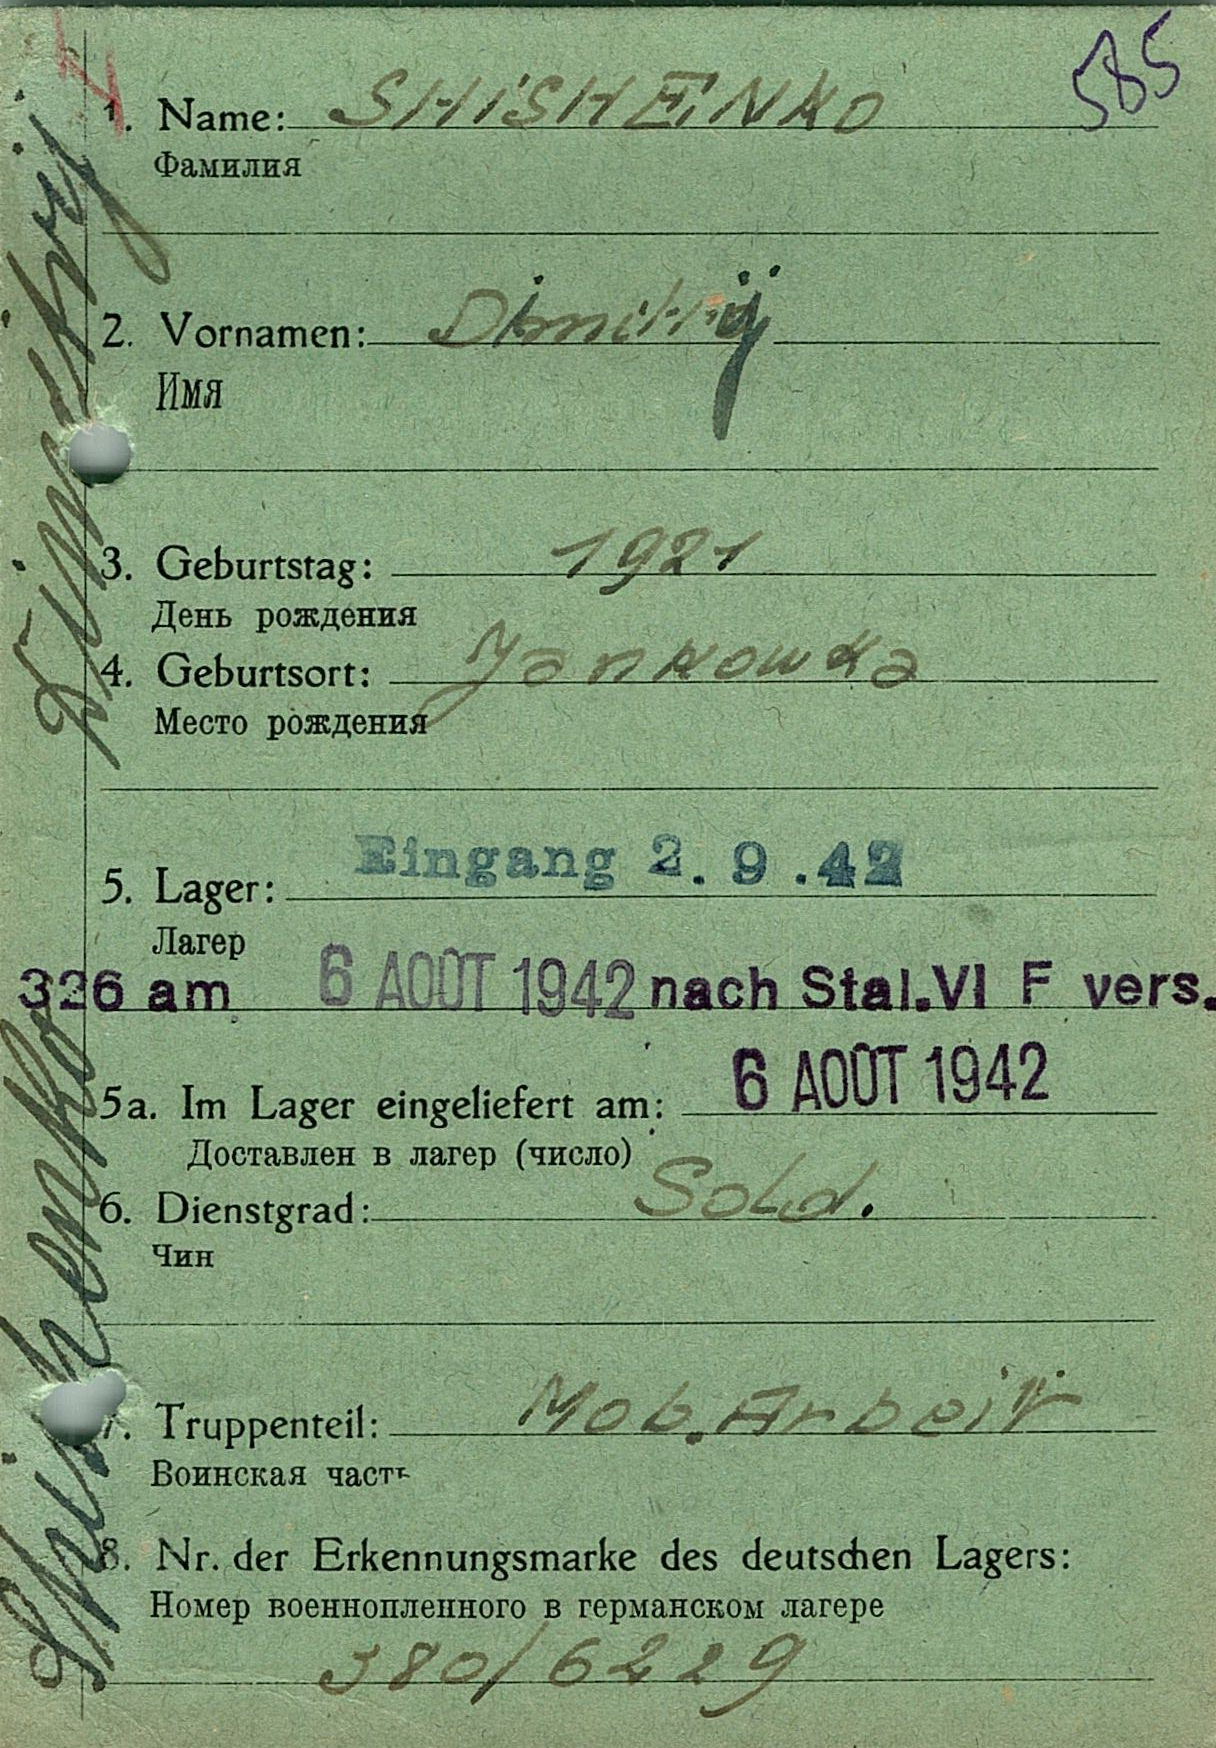 585
1. Name: SHISHENKO
Фамилия
2. Vornamen: Dimitrij
Имя
3. Geburtstag: 1921
День рождения
4. Geburtsort: Jankowka
Место рождения
Eingang 2.9.42
5. Lager:
Лагер
326 am 6 AOÛT 1942 nach Stal. VI F vers.
6 AOÛT 1942
5a. Im Lager eingeliefert am:
Доставлен в лагер (число)
6. Dienstgrad: Sold.
Чин
7. Truppenteil: Mob. Arbeit
Воинская часть
8. Nr. der Erkennungsmarke des deutschen Lagers:
Номер военнопленного в германском лагере
380/6229
Shishenko Dimitrij